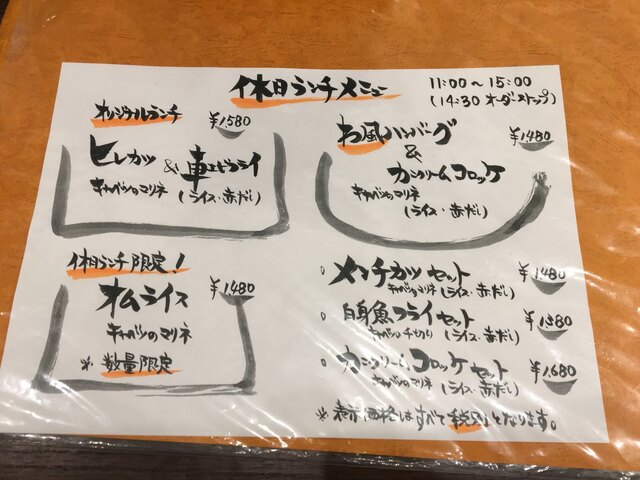 休日ランチメニュー
11:00～15:00
(14:30 オーダーストップ)
オリジナルランチ
¥1580
ヒレカツ & 車エビフライ
キャベツのマリネ (ライス・赤だし)
和風ハンバーグ
¥1480
&
カニクリームコロッケ
キャベツのマリネ
(ライス・赤だし)
休日ランチ限定!
オムライス
¥1480
キャベツのマリネ
※ 数量限定
メンチカツセット
¥1480
キャベツのマリネ (ライス・赤だし)
白身魚フライセット
¥1380
キャベツの千切り (ライス・赤だし)
カニクリームコロッケセット
¥1,680
キャベツのマリネ (ライス・赤だし)
※表示価格はすべて税別となります。